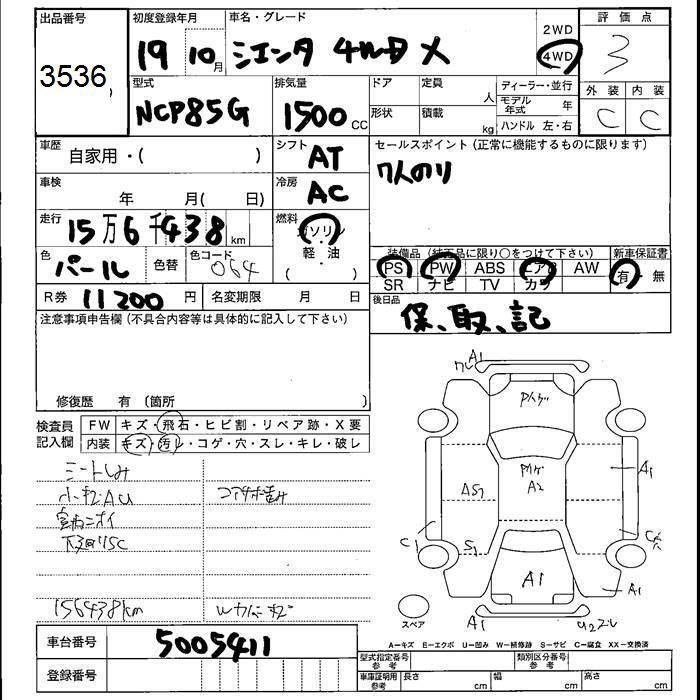 出品番号
3536
初度登録年月
19 10月
車名・グレード
シエンタ 4WD X
2WD
4WD
評価点
3
型式
NCP85G
排気量
1500 CC
ドア
定員
人
形状
積載
kg
ディーラー・並行
モデル年式
年
ハンドル 左・右
外装
内装
C
C
車歴
自家用・( )
シフト
AT
セールスポイント(正常に機能するものに限ります)
7人のり
車検
年 月( 日)
冷房
AC
走行
15万6千438km
燃料
ガソリン
軽・油
( )
色
パール
色替
色コード
064
装備品(純正品に限り〇をつけて下さい)
PS PW ABS エアB AW
SR ナビ TV カワ
新車保証書
有 無
R券
11200円
名変期限 月 日
後日品
保、取、記
注意事項申告欄(不具合内容等は具体的に記入して下さい)
修復歴 有(箇所 )
検査員記入欄
FW キズ・飛石・ヒビ割・リペア跡・X要
内装 キズ・汚レ・コゲ・穴・スレ・キレ・破レ
シートしみ
小キズAU
コアサポ
室内ニオイ
下廻りSC
156438km
A1
A2
A1
A1
S1
C1
A1
A1
スペア
A-キズ E-エクボ U-凹み W-補修跡 S-サビ C-腐食 XX-交換済
車台番号
5005411
登録番号
型式指定番号
参考
類別区分番号
参考
車庫証明用
参考
長さ cm
幅 cm
高さ cm